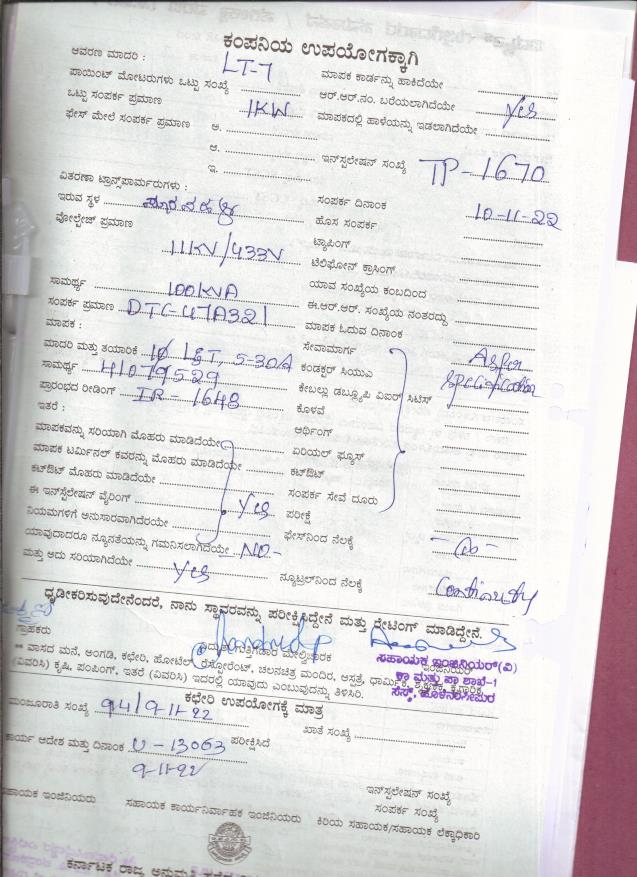 ಕಂಪನಿಯ ಉಪಯೋಗಕ್ಕಾಗಿ
ಆವರಣ ಮಾದರಿ : LT-7
ಪಾಯಿಂಟ್ ಮೋಟರುಗಳು ಒಟ್ಟು ಸಂಖ್ಯೆ
ಒಟ್ಟು ಸಂಪರ್ಕ ಪ್ರಮಾಣ 1KW
ಫೇಸ್ ಮೇಲೆ ಸಂಪರ್ಕ ಪ್ರಮಾಣ ಅ.
ಆ.
ಇ.
ಮಾಪಕ ಕಾರ್ಡನ್ನು ಹಾಕಿದೆಯೇ
ಆರ್.ಆರ್.ನಂ. ಬರೆಯಲಾಗಿದೆಯೇ Yes
ಮಾಪಕದಲ್ಲಿ ಹಾಳೆಯನ್ನು ಇಡಲಾಗಿದೆಯೇ
ಇನ್ಸ್ಟಲೇಷನ್ ಸಂಖ್ಯೆ TP-1670
ವಿತರಣಾ ಟ್ರಾನ್ಸ್‌ಪಾರ್ಮರುಗಳು :
ಇರುವ ಸ್ಥಳ
ವೋಲ್ಟೇಜ್ ಪ್ರಮಾಣ
11KV/433V
ಸಾಮರ್ಥ್ಯ 100KVA
ಸಂಪರ್ಕ ಪ್ರಮಾಣ DTC-47A321
ಮಾಪಕ :
ಮಾದರಿ ಮತ್ತು ತಯಾರಿಕೆ 5-30A
ಸಾಮರ್ಥ್ಯ 41079529
ಪ್ರಾರಂಭದ ರೀಡಿಂಗ್ IR-1648
ಇತರೆ :
ಮಾಪಕವನ್ನು ಸರಿಯಾಗಿ ಮೊಹರು ಮಾಡಿದೆಯೇ
ಮಾಪಕ ಟರ್ಮಿನಲ್ ಕವರನ್ನು ಮೊಹರು ಮಾಡಿದೆಯೇ
ಕಟ್‌ಔಟ್ ಮೊಹರು ಮಾಡಿದೆಯೇ
ಈ ಇನ್‌ಸ್ಟೆಲೇಷನ್ ವೈರಿಂಗ್ Yes
ನಿಯಮಗಳಿಗೆ ಅನುಸಾರವಾಗಿದೆರಯೇ
ಯಾವುದಾದರೂ ನ್ಯೂನತೆಯನ್ನು ಗಮನಿಸಲಾಗಿದೆಯೇ NO-
ಮತ್ತು ಅದು ಸರಿಯಾಗಿದೆಯೇ Yes
ಸಂಪರ್ಕ ದಿನಾಂಕ 10-11-22
ಹೊಸ ಸಂಪರ್ಕ
ಟ್ಯಾಪಿಂಗ್
ಟೆಲಿಫೋನ್ ಕ್ರಾಸಿಂಗ್
ಯಾವ ಸಂಖ್ಯೆಯ ಕಂಬದಿಂದ
ಈ.ಆರ್.ಆರ್. ಸಂಖ್ಯೆಯ ನಂತರದ್ದು
ಮಾಪಕ ಓದುವ ದಿನಾಂಕ
ಸೇವಾಮಾರ್ಗ
ಕಂಡಕ್ಟರ್ ಸಿಯುಎ As per
ಕೇಬಲ್ಲು ಡಬ್ಲ್ಯೂಪಿ ವಿಐಆರ್ ಸಿಟಿಸ್ specification
ಕೊಳವೆ
ಆರ್ಥಿಂಗ್
ಏರಿಯಲ್ ಫ್ಯೂಸ್
ಕಟ್‌ಔಟ್
ಸಂಪರ್ಕ ಸೇವೆ ದೂರು
ಪರೀಕ್ಷೆ
ಫೇಸ್‌ನಿಂದ ನೆಲಕ್ಕೆ
ನ್ಯೂಟ್ರಲ್‌ನಿಂದ ನೆಲಕ್ಕೆ Continuity
ಧೃಡೀಕರಿಸುವುದೇನೆಂದರೆ, ನಾನು ಸ್ಥಾವರವನ್ನು ಪರೀಕ್ಷಿಸಿದ್ದೇನೆ ಮತ್ತು ರೇಟಿಂಗ್ ಮಾಡಿದ್ದೇನೆ.
ಗ್ರಾಹಕರು
ಸಹಾಯಕ ಇಂಜಿನಿಯರ್(ವಿ)
ಕಾ ಮತ್ತು ಪಾ ಶಾಖೆ-1
ಸೆಸ್ಕ್, ಹೊಳೆನರಸೀಪುರ
** ವಾಸದ ಮನೆ, ಅಂಗಡಿ, ಕಛೇರಿ, ಹೋಟೆಲ್, ರೆಸ್ಟೋರೆಂಟ್, ಚಲನಚಿತ್ರ ಮಂದಿರ, ಆಸ್ಪತ್ರೆ, ಧಾರ್ಮಿಕ, ಶೈಕ್ಷಣಿಕ, ಕೈಗಾರಿಕ,
(ವಿವರಿಸಿ) ಕೃಷಿ, ಪಂಪಿಂಗ್, ಇತರೆ (ವಿವರಿಸಿ) ಇದರಲ್ಲಿ ಯಾವುದು ಎಂಬುವುದನ್ನು ತಿಳಿಸಿರಿ.
ಕಛೇರಿ ಉಪಯೋಗಕ್ಕೆ ಮಾತ್ರ
ಮಂಜೂರಾತಿ ಸಂಖ್ಯೆ 94/9-11-22 ಖಾತೆ ಸಂಖ್ಯೆ
ಕಾರ್ಯ ಆದೇಶ ಮತ್ತು ದಿನಾಂಕ U-13063 ಪರೀಕ್ಷಿಸಿದೆ
9-11-22
ಇನ್‌ಸ್ಟಲೇಷನ್ ಸಂಖ್ಯೆ
ಸಂಪರ್ಕ ಸಂಖ್ಯೆ
ಸಹಾಯಕ ಇಂಜಿನಿಯರು ಸಹಾಯಕ ಕಾರ್ಯನಿರ್ವಾಹಕ ಇಂಜಿನಿಯರು ಕಿರಿಯ ಸಹಾಯಕ/ಸಹಾಯಕ ಲೆಕ್ಕಾಧಿಕಾರಿ
ಕರ್ನಾಟಕ ರಾಜ್ಯ